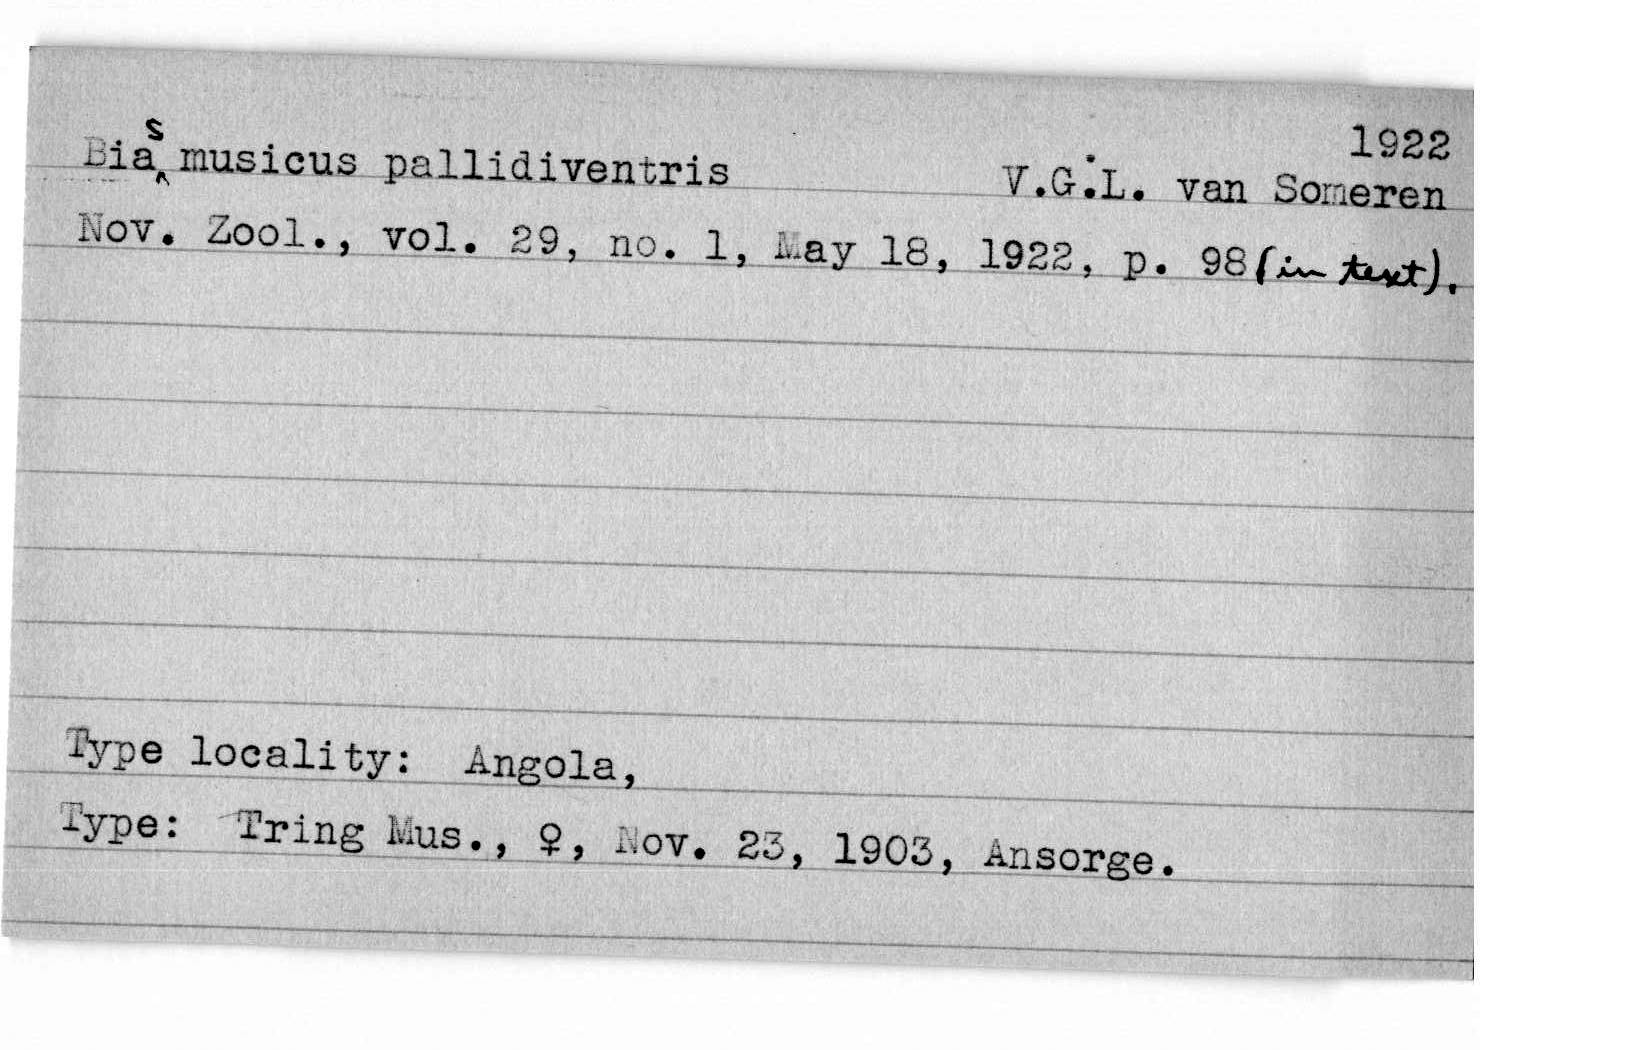 1922
Bias musicus pallidiventris V.G.L. van Someren
Nov. Zool., vol. 29, no. 1, May 18, 1922, p. 98 (in text).
Type locality: Angola,
Type: Tring Mus., ♀, Nov. 23, 1903, Ansorge.